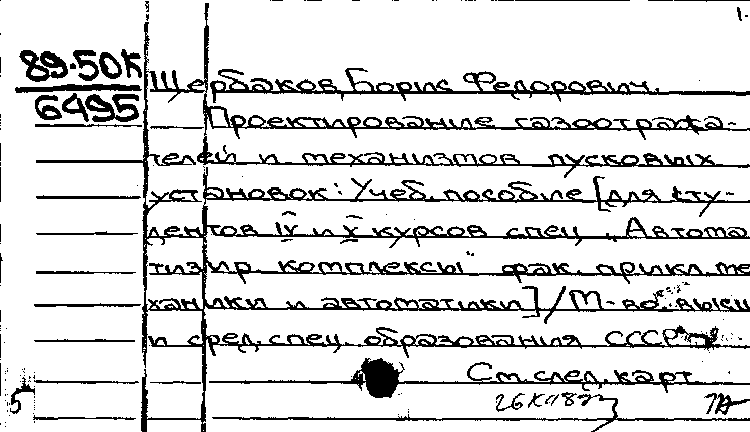 1.
89-50К
6495
Щербаков, Борис Федорович.
Проектирование газоотража-
телей и механизмов пусковых
установок: Учеб. пособие [для сту-
дентов IV и V курсов спец. "Автома
тизир. комплексы" фак. прикл. ме
ханики и автоматики] / М-во. высш
и сред. спец. образования СССР
См. след. карт.
5